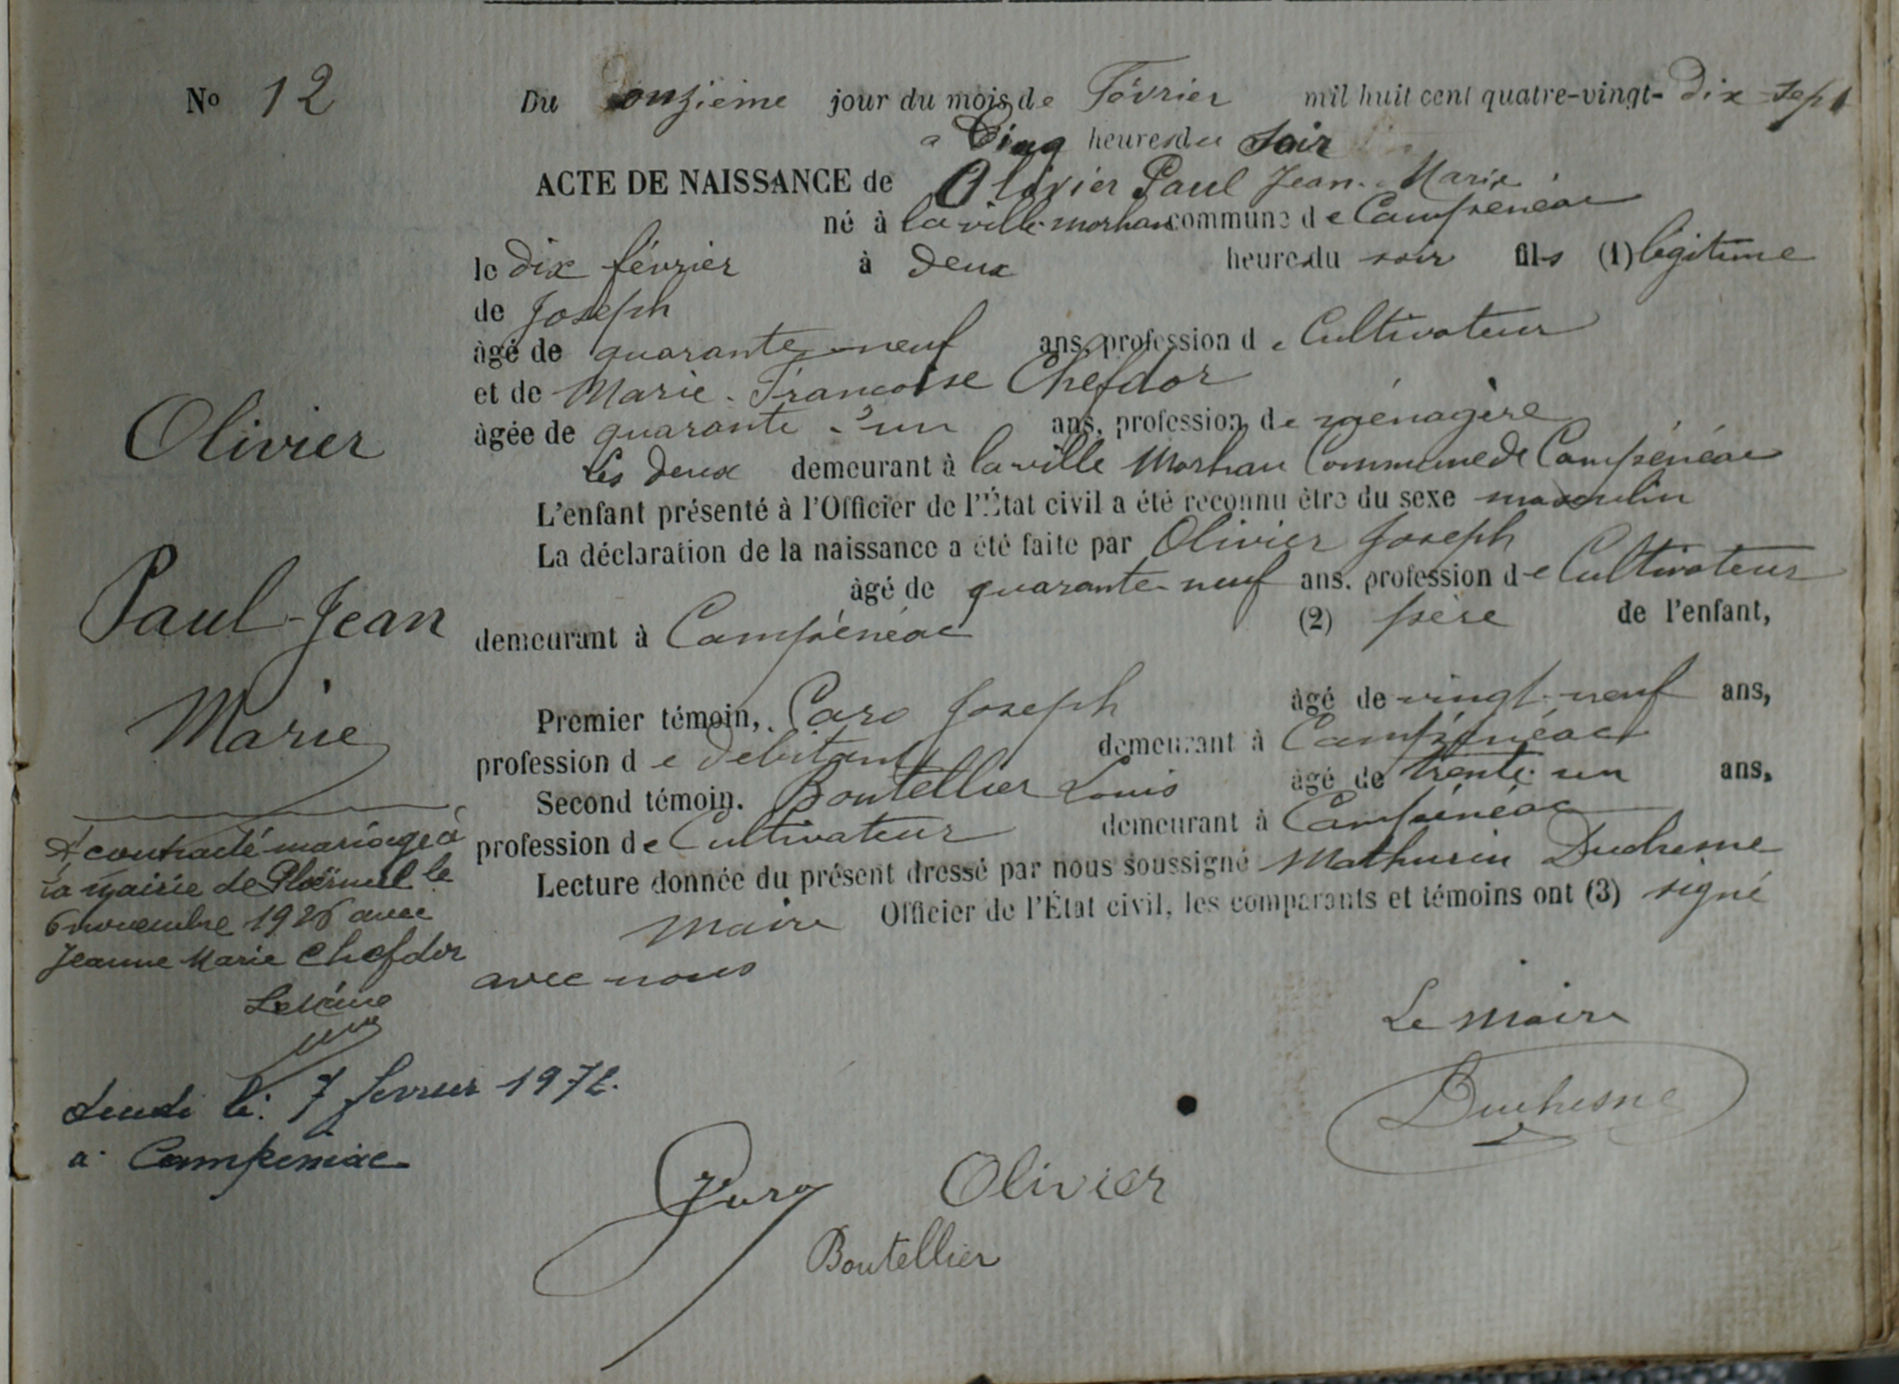 No 12
Du onzième jour du mois de Février mil huit cent quatre-vingt-dix-sept
a Cinq heures du soir
ACTE DE NAISSANCE de Olivier Paul Jean-Marie
né à la ville morhan commune de Campénéac
le dix février à deux heures du soir fils (1) légitime
de Joseph
âgé de quarante-neuf ans, profession de Cultivateur
et de Marie-Françoise Chefdor
âgée de quarante-un ans, profession de ménagère
Les deux demeurant à la ville Morhan Commune de Campénéac
L'enfant présenté à l'Officier de l'État civil a été reconnu être du sexe masculin
La déclaration de la naissance a été faite par Olivier Joseph
âgé de quarante-neuf ans, profession de Cultivateur
demeurant à Campénéac (2) père de l'enfant,
Premier témoin, Caro Joseph âgé de vingt-neuf ans,
profession de débitant demeurant à Campénéac
Second témoin. Boutellier Louis âgé de trente-un ans,
profession de Cultivateur demeurant à Campénéac
Lecture donnée du présent dressé par nous soussigné Mathurin Duchesne
maire Officier de l'État civil, les comparants et témoins ont (3) signé
avec nous
Le Maire
Duchesne
Olivier
Boutellier
Olivier
Paul-Jean
Marie
A contracté mariage à
la mairie de Ploërmel le
6 novembre 1926 avec
Jeanne Marie Chefdor
le 7 février 197
a Campeneac